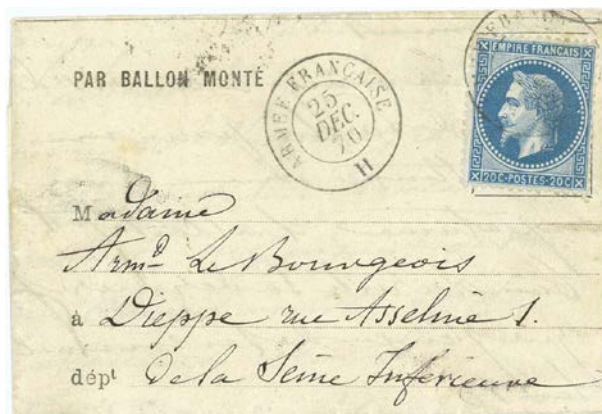 PAR BALLON MONTÉ
ARMÉE FRANÇAISE
25
DEC.
70
H
EMPIRE FRANÇAIS
20C-POSTES-20C
Madame
Armd Le Bourgeois
à Dieppe rue Asseline 1.
dépt De la Seine Inférieure